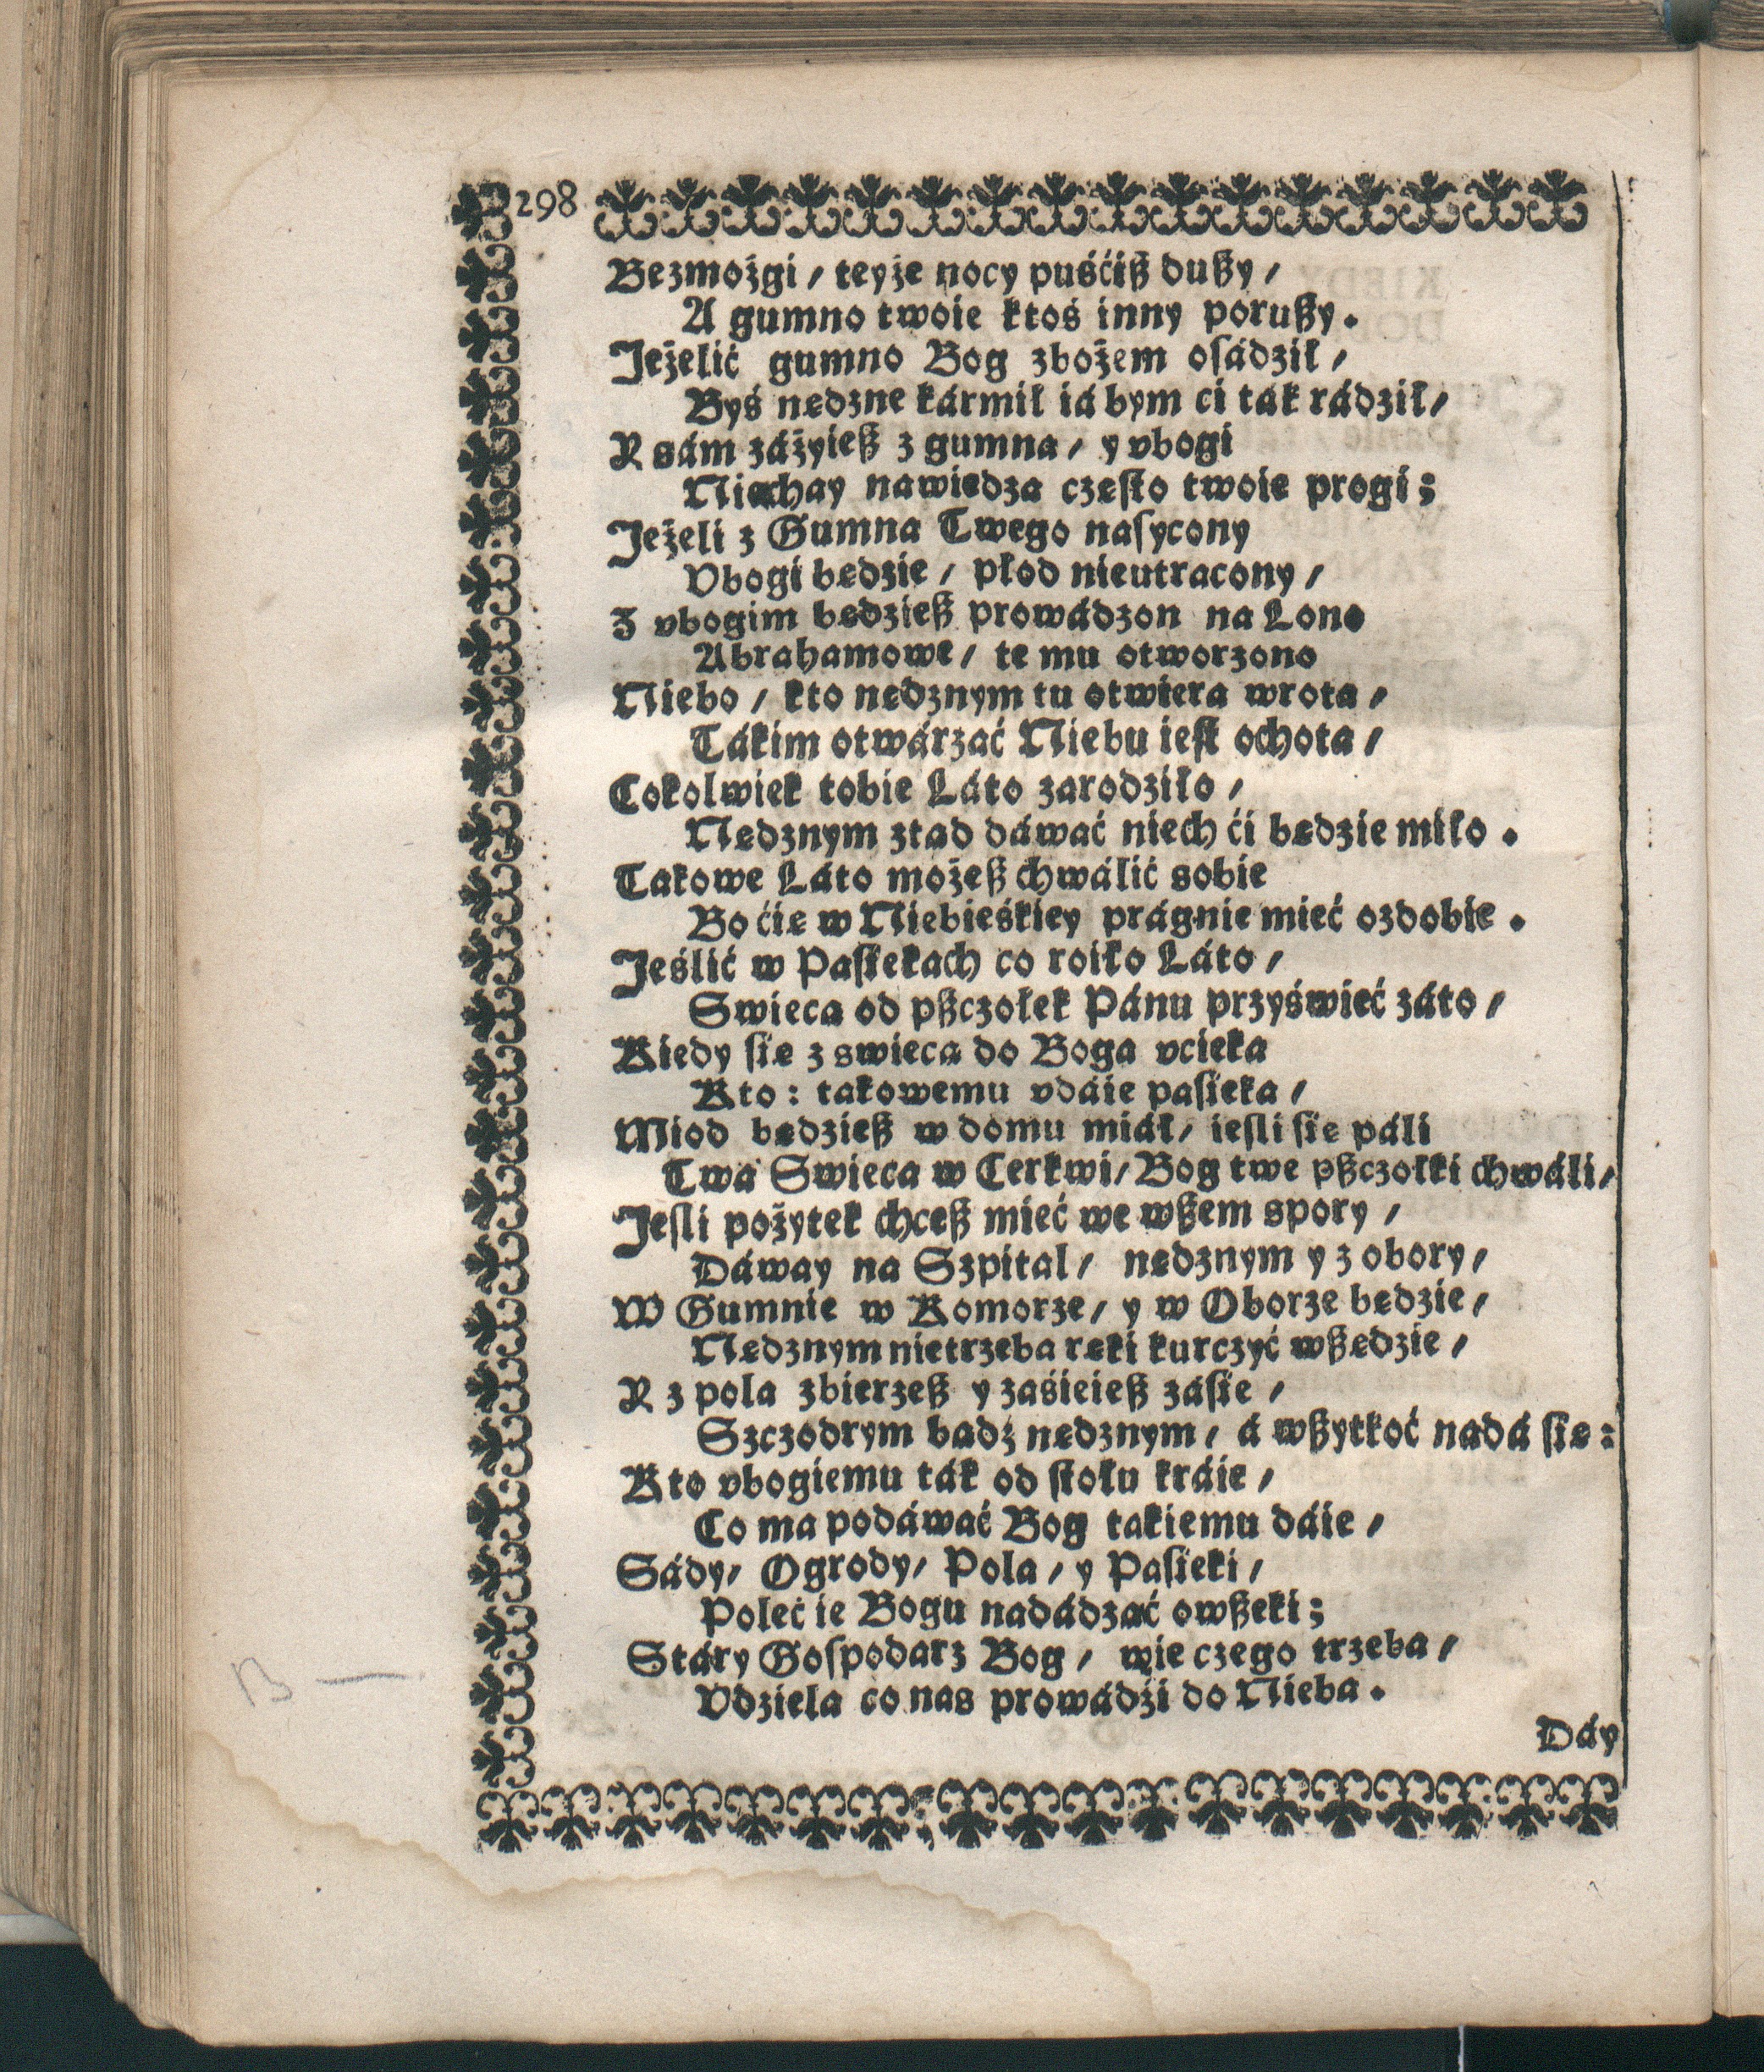 298
Bezmożgi / teyże nocy puśćiß dußy /
A gumno twoie ktoś inny porußy.
Jeżelić gumno Bog zbożem osádził /
Byś nędzne kármił iá bym ci ták rádził /
R sám záżyieß z gumna / y vbogi
Niechay nawiedza często twoie progi;
Jeżeli z Gumna Twego nasycony
Vbogi będzie / płod nieutracony /
Z vbogim będzieß prowádzon na Lono
Abrahamowe / te mu otworzono
Niebo / kto nędznym tu otwiera wrota /
Tákim otwárzać Niebu iest ochota /
Cokolwiek tobie Láto zarodziło /
Nędznym ztąd dáwać niech ći będzie miło.
Takowe Láto możeß chwálić sobie
Bo ćię w Niebieśkiey prágnie mieć ozdobie.
Jeślić w Pasiekach co roiło Láto /
Swieca od pßczołek Pánu przyświeć záto /
Kiedy się z swiecą do Boga vcieka
Kto: takowemu vdáie pasieka /
Miod będzieß w domu miáł / iesli się páli
Twa Swieca w Cerkwi / Bog twe pßczołki chwáli /
Jesli pożytek chceß mieć we wßem spory /
Dáway na Szpital / nędznym y z obory /
W Gumnie w Komorze / y w Oborze będzie /
Nędznym nietrzeba ręki kurczyć wßędzie /
R z pola zbierzeß y zaśieieß zásię /
Szczodrym bądź nędznym / á wßytkoć nadá się:
Kto vbogiemu ták od stołu kráie /
Co ma podáwać Bog takiemu dáie /
Sády / Ogrody / Pola / y Pasieki /
Poleć ie Bogu nadádzać owßeki;
Stáry Gospodarz Bog / wie czego trzeba /
Vdziela co nas prowádźi do Nieba.
Dáy
B —